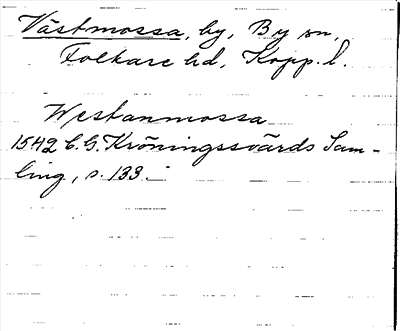 Västmossa, by, By sn,
Folkare hd, Kopp. l.
Westanmossa
1542 C.G. Kröningssvärds Sam-
ling, s. 133.